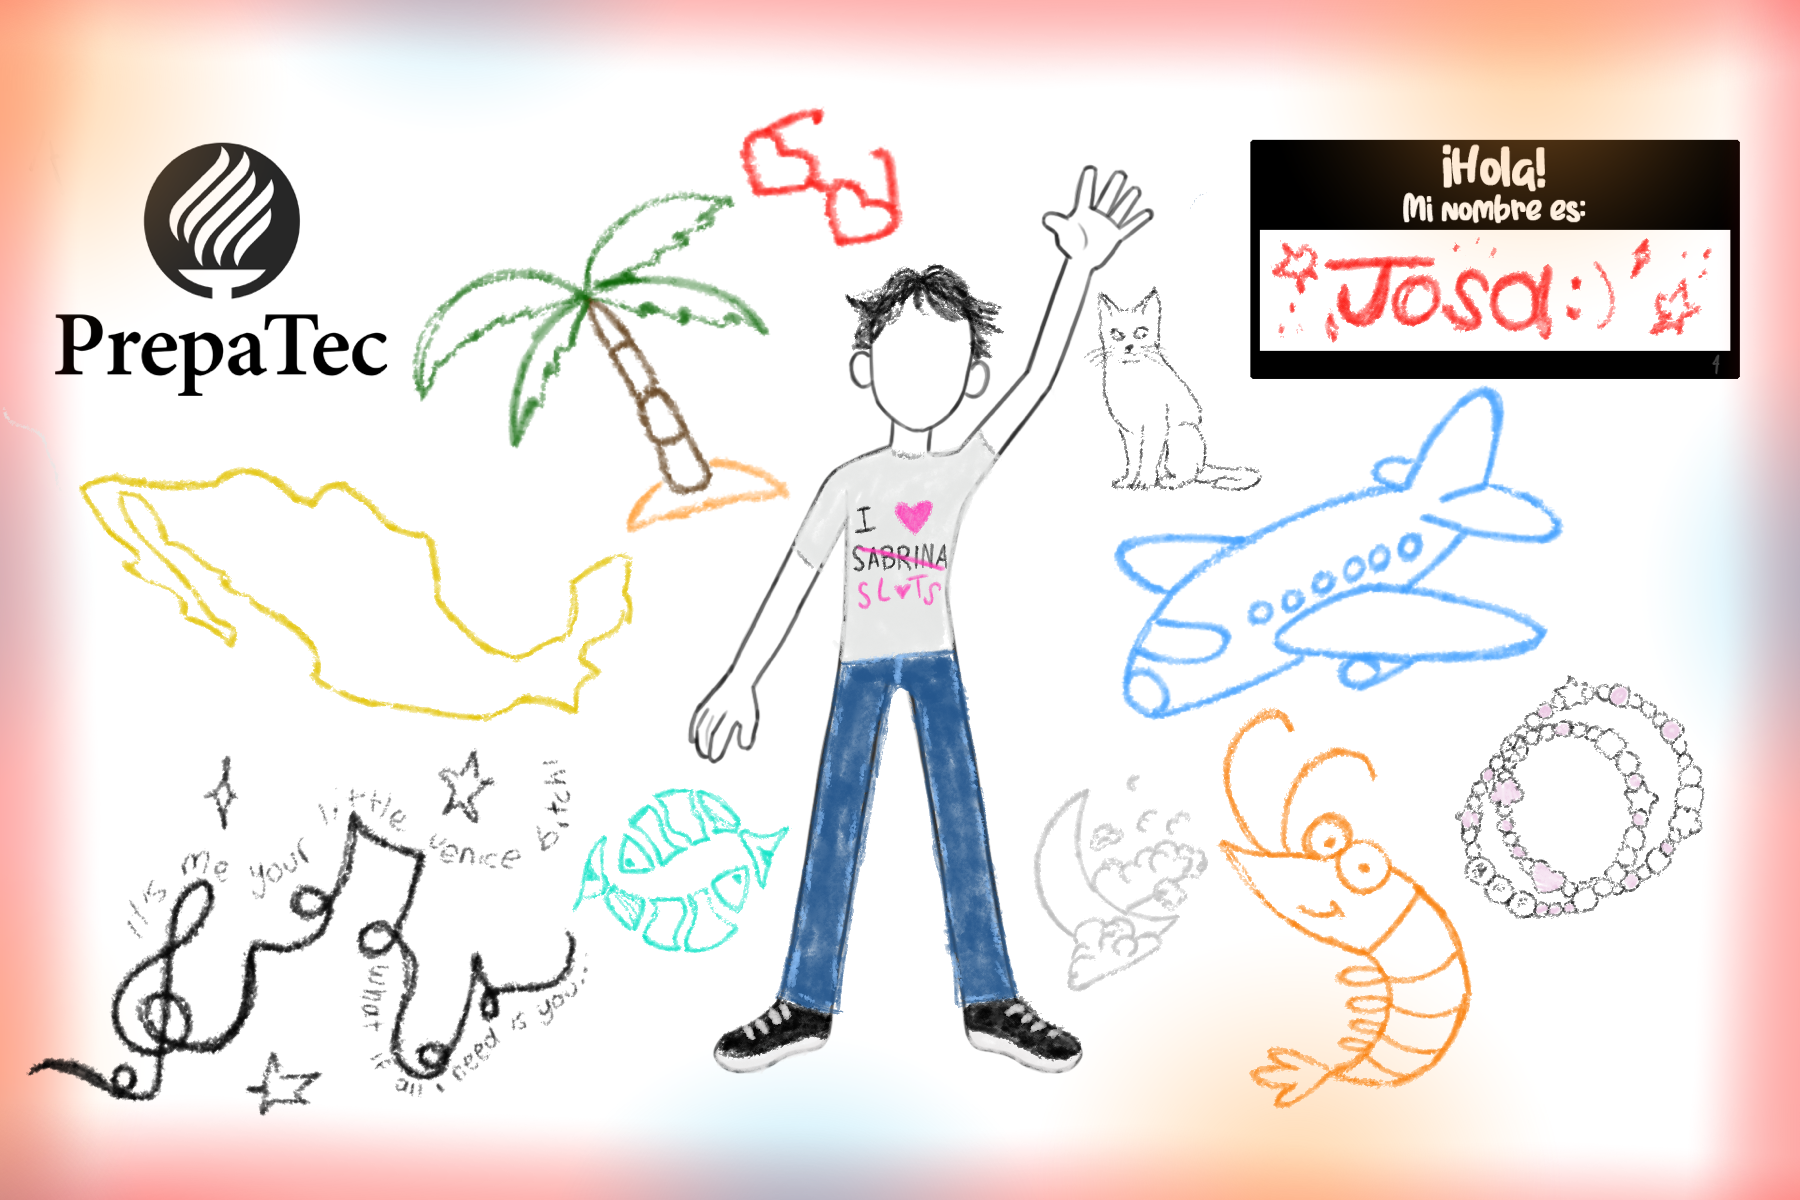 PrepaTec
¡Hola!
Mi nombre es:
Josa:)
4
I ♥
SABRINA
SL♥TS
it's me your little venice bitch
what if all i need is you...